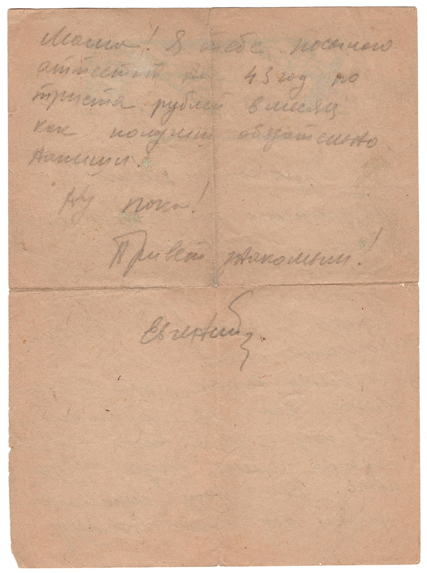 Мама! Я тебе посылаю
аттестат на 43 год по
триста рублей в месяц
как получиш обязательно
напиши.
Ну пока!
Привет знакомым!
Евгений